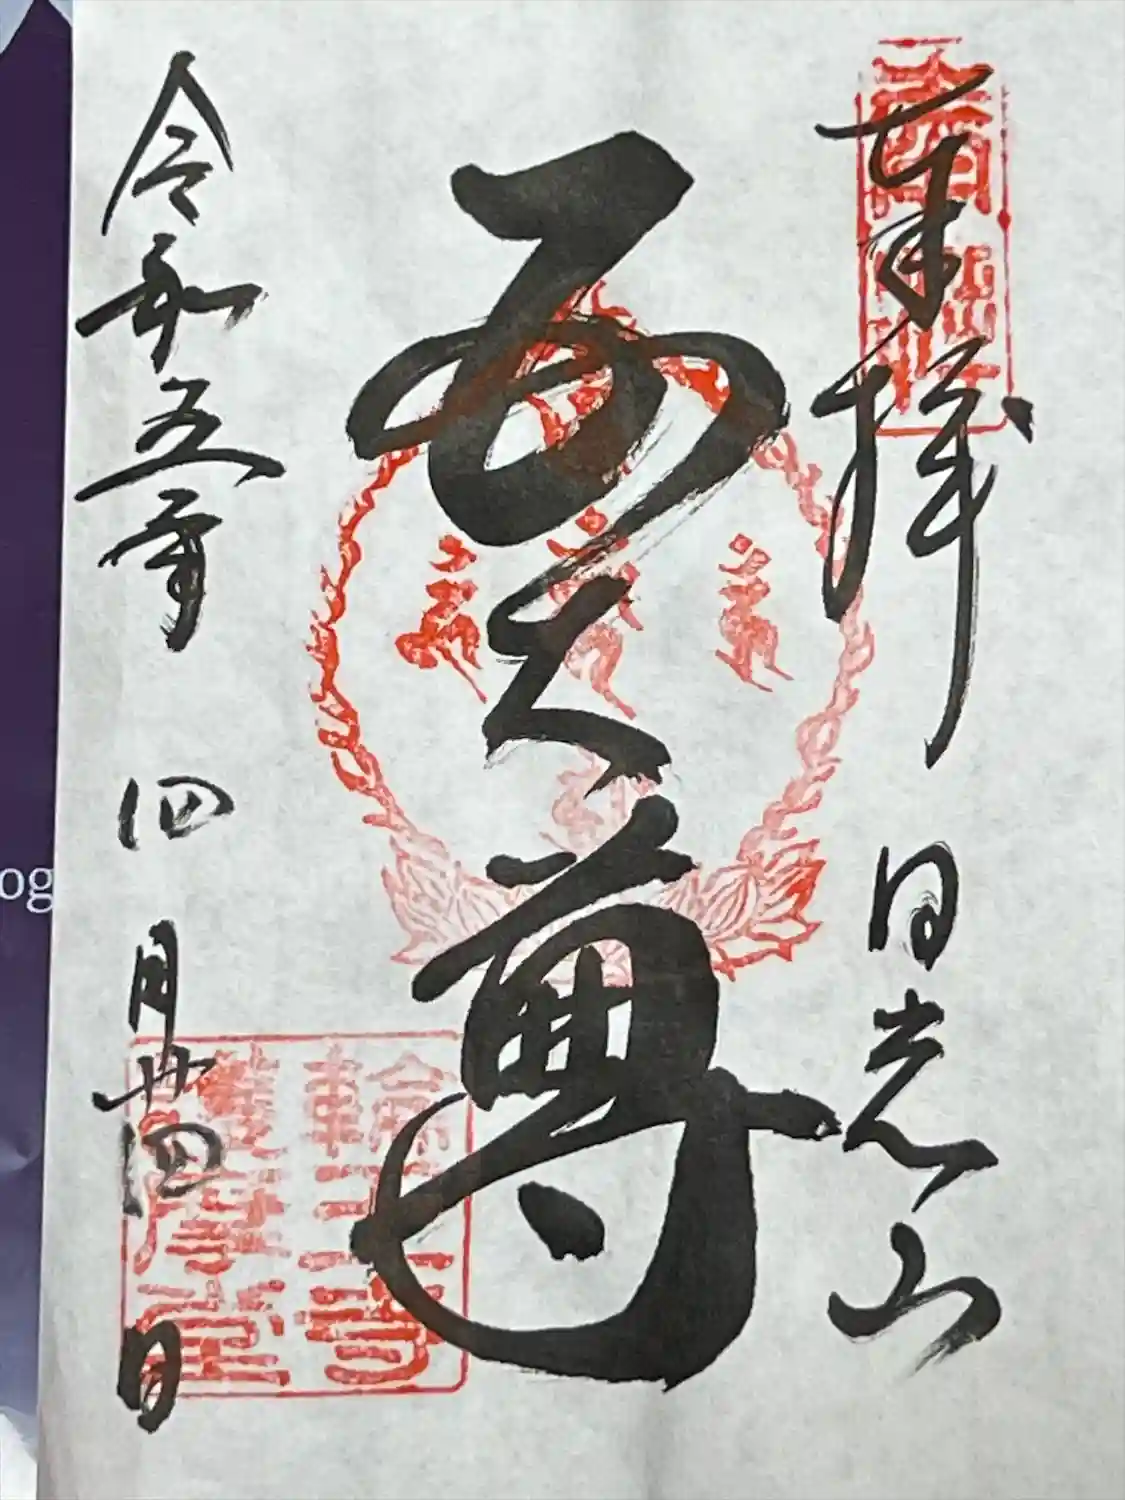 奉拝 日光山
五大尊
令和五年 四月廿四日
輪王寺
護摩堂
og